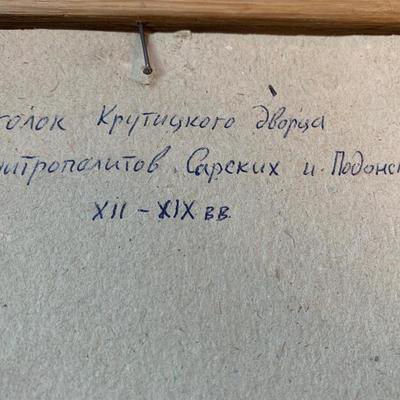 голок Крутицкого дворца
митрополитов Сарских и Подонс
XII - XIX вв.